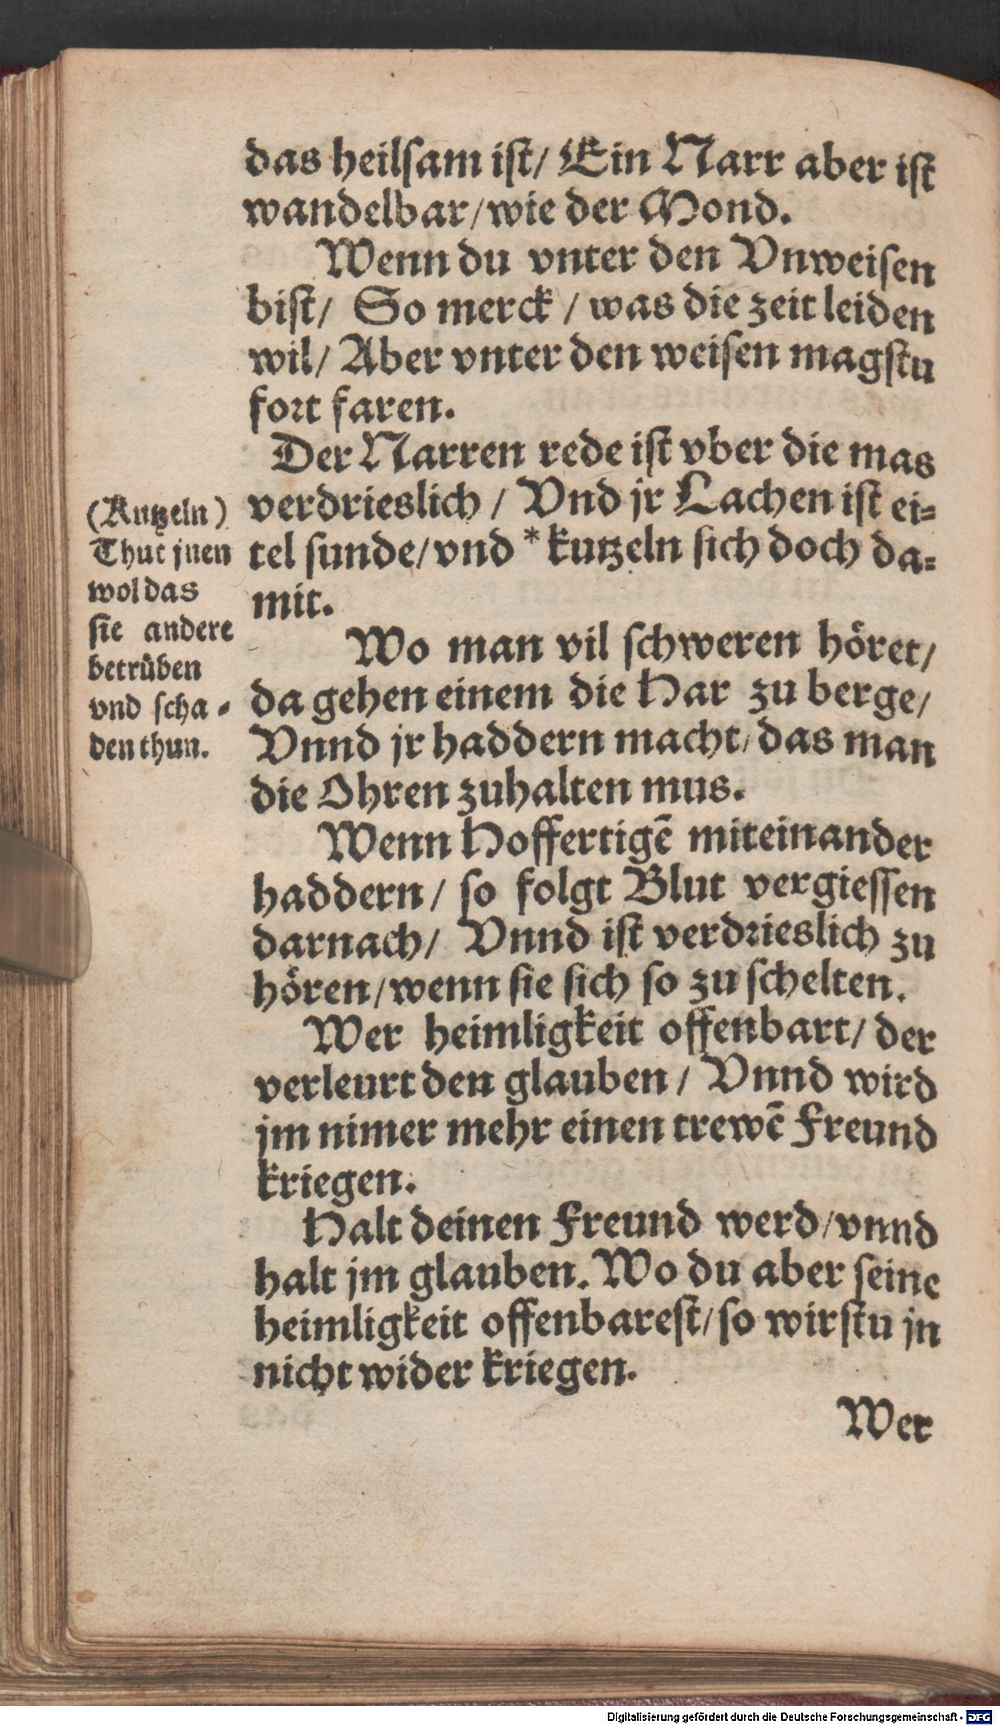 das heilsam ist/ Ein Narr aber ist
wandelbar/wie der Mond.
Wenn du vnter den Vnweisen
bist/ So merck / was die zeit leiden
wil/ Aber vnter den weisen magstu
fort faren.
Der Narren rede ist vber die mas
verdrieslich / Vnd jr Lachen ist ei-
tel sunde/vnd *kutzeln sich doch da-
mit.
(Kutzeln)
Thut jnen
wol das
sie andere
betrüben
vnd scha-
den thun.
Wo man vil schweren höret/
da gehen einem die Har zu berge/
Vnnd jr haddern macht/das man
die Ohren zuhalten mus.
Wenn Hoffertigē miteinander
haddern/ so folgt Blut vergiessen
darnach/ Vnnd ist verdrieslich zu
hören/wenn sie sich so zu schelten.
Wer heimligkeit offenbart/ der
verleurt den glauben / Vnnd wird
jm nimer mehr einen trewē Freund
kriegen.
Halt deinen Freund werd/vnnd
halt jm glauben. Wo du aber seine
heimligkeit offenbarest/so wirstu jn
nicht wider kriegen.
Wer
Digitalisierung gefördert durch die Deutsche Forschungsgemeinschaft - DFG